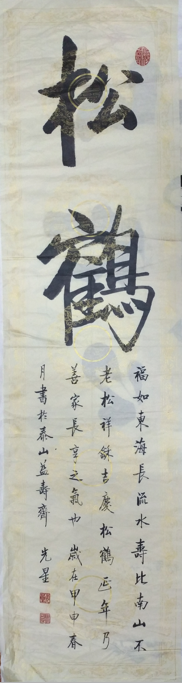 松鶴
福如東海長流水壽比南山不
老松祥龢吉慶松鶴延年乃
善家長享之氣也 歲在甲申春
月書於泰山益壽齋 先星